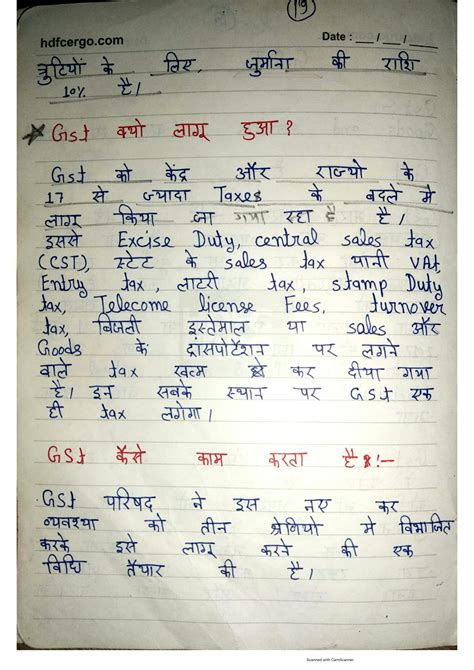 19
hdfcergo.com
Date : ___/___/___
त्रुटियों के लिए जुर्माना की राशि
10% है।
Gst क्यो लागू हुआ ?
Gst को केंद्र और राज्यो के
17 से ज्यादा Taxes के बदले मे
लागू किया जा गया रहा है है।
इससे Excise Duty, central sales tax
(CST), स्टेट के sales tax यानी VAt,
Entry tax, लाटरी tax, stamp Duty
tax, Telecome license Fees, turnover
tax, बिजली इस्तेमाल या sales और
Goods के ट्रांसपोर्टेशन पर लगने
वाले tax खत्म कर दीया गया
है। इन सबके स्थान पर Gst एक
ही tax लगेगा।
GSt कैसे काम करता है :-
Gst परिषद ने इस नए कर
व्यवस्था को तीन श्रेणियो मे विभाजित
करके इसे लागू करने की एक
विधि तैयार की है।
Scanned with CamScanner